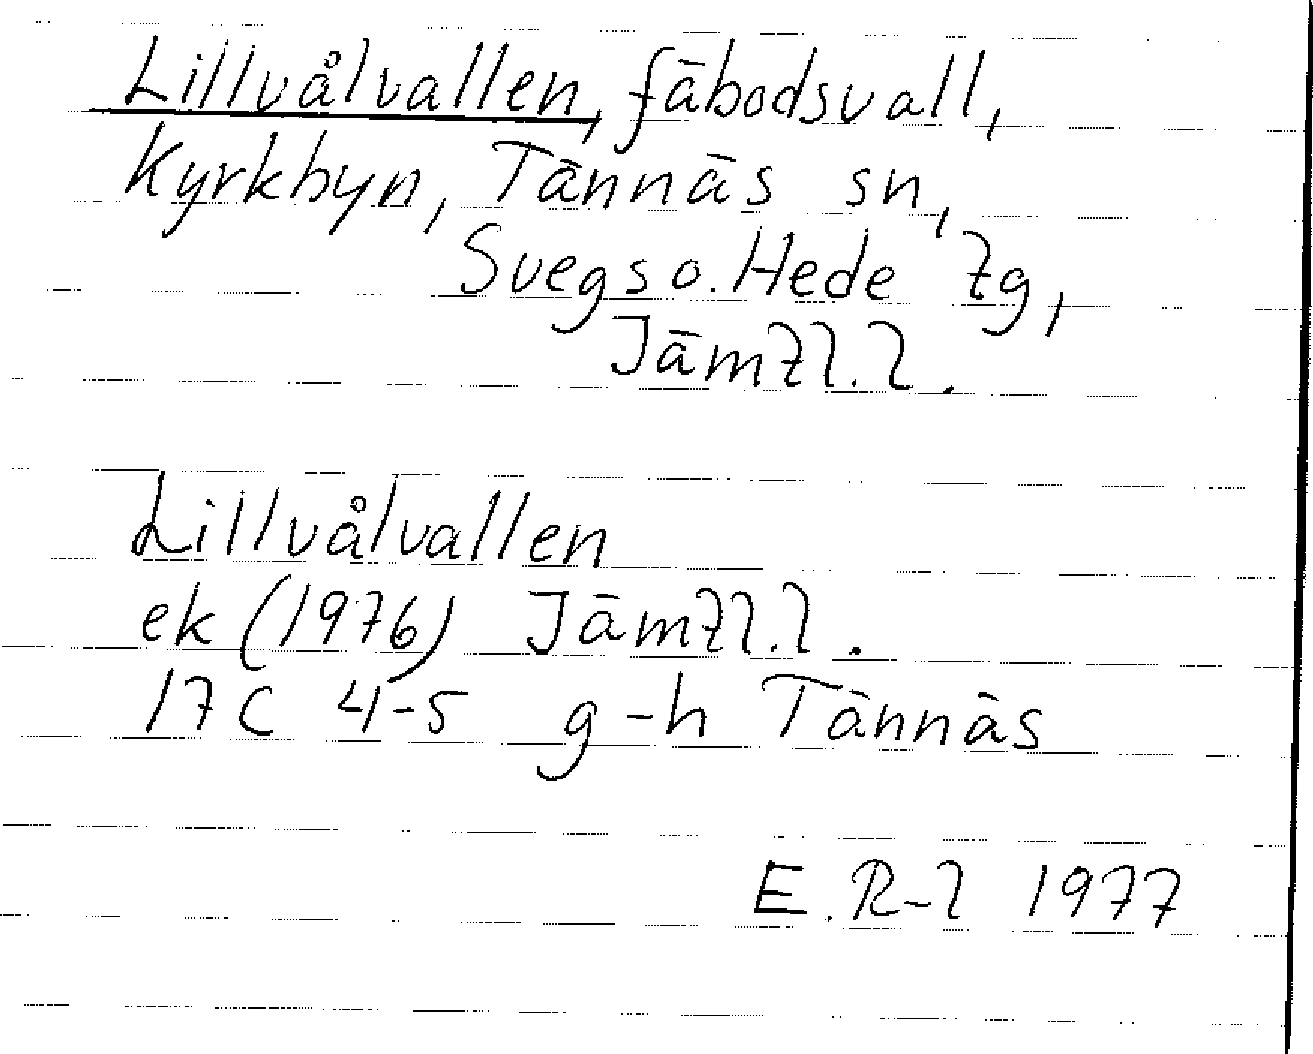 Lillvålvallen, fäbodsvall,
Kyrkbyn, Tännäs sn,
Svegs o. Hede tg,
Jämtl. l.
Lillvålvallen
ek (1976) Jämtl. l.
17C 4-5 g-h Tännäs
E. R-l 1977